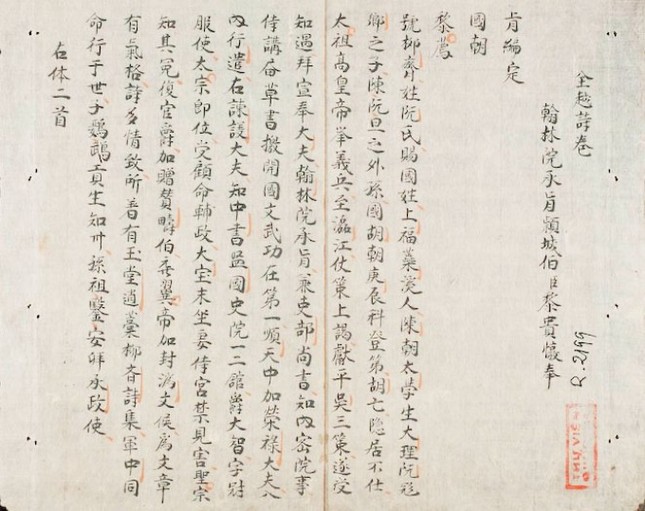 全越詩卷
翰林院承旨頴城伯臣黎貴惇奉
旨編定
國朝
黎廌
號抑齋姓阮氏賜國姓上福蘂溪人陳朝太學生大理阮飛
卿之子陳阮旦之外孫國胡朝庚辰科登第胡亡隐居不仕
太祖高皇帝举義兵至瀘江仗策上謁獻平吳三策遂受
知遇拜宣奉大夫翰林院承旨兼吏部尚書知內密院事
侍講 草書撽開國文武功在第一順天中加榮禄大夫入
內行遣右諫議大夫知中書監國史院一二舘爵大智字冠
服使太宗即位受顧命輔政大宝末坐妾侍宮禁見害聖宗
知其冤復官爵加贈賛疇伯襄翼帝加封濟文侯爲文章
有氣格詩多情致所着有玉堂遺藁抑齋詩集軍中同
命行于世子鸚鵡員生知州孫祖鑒安邦承政使
右体二首
R.2199